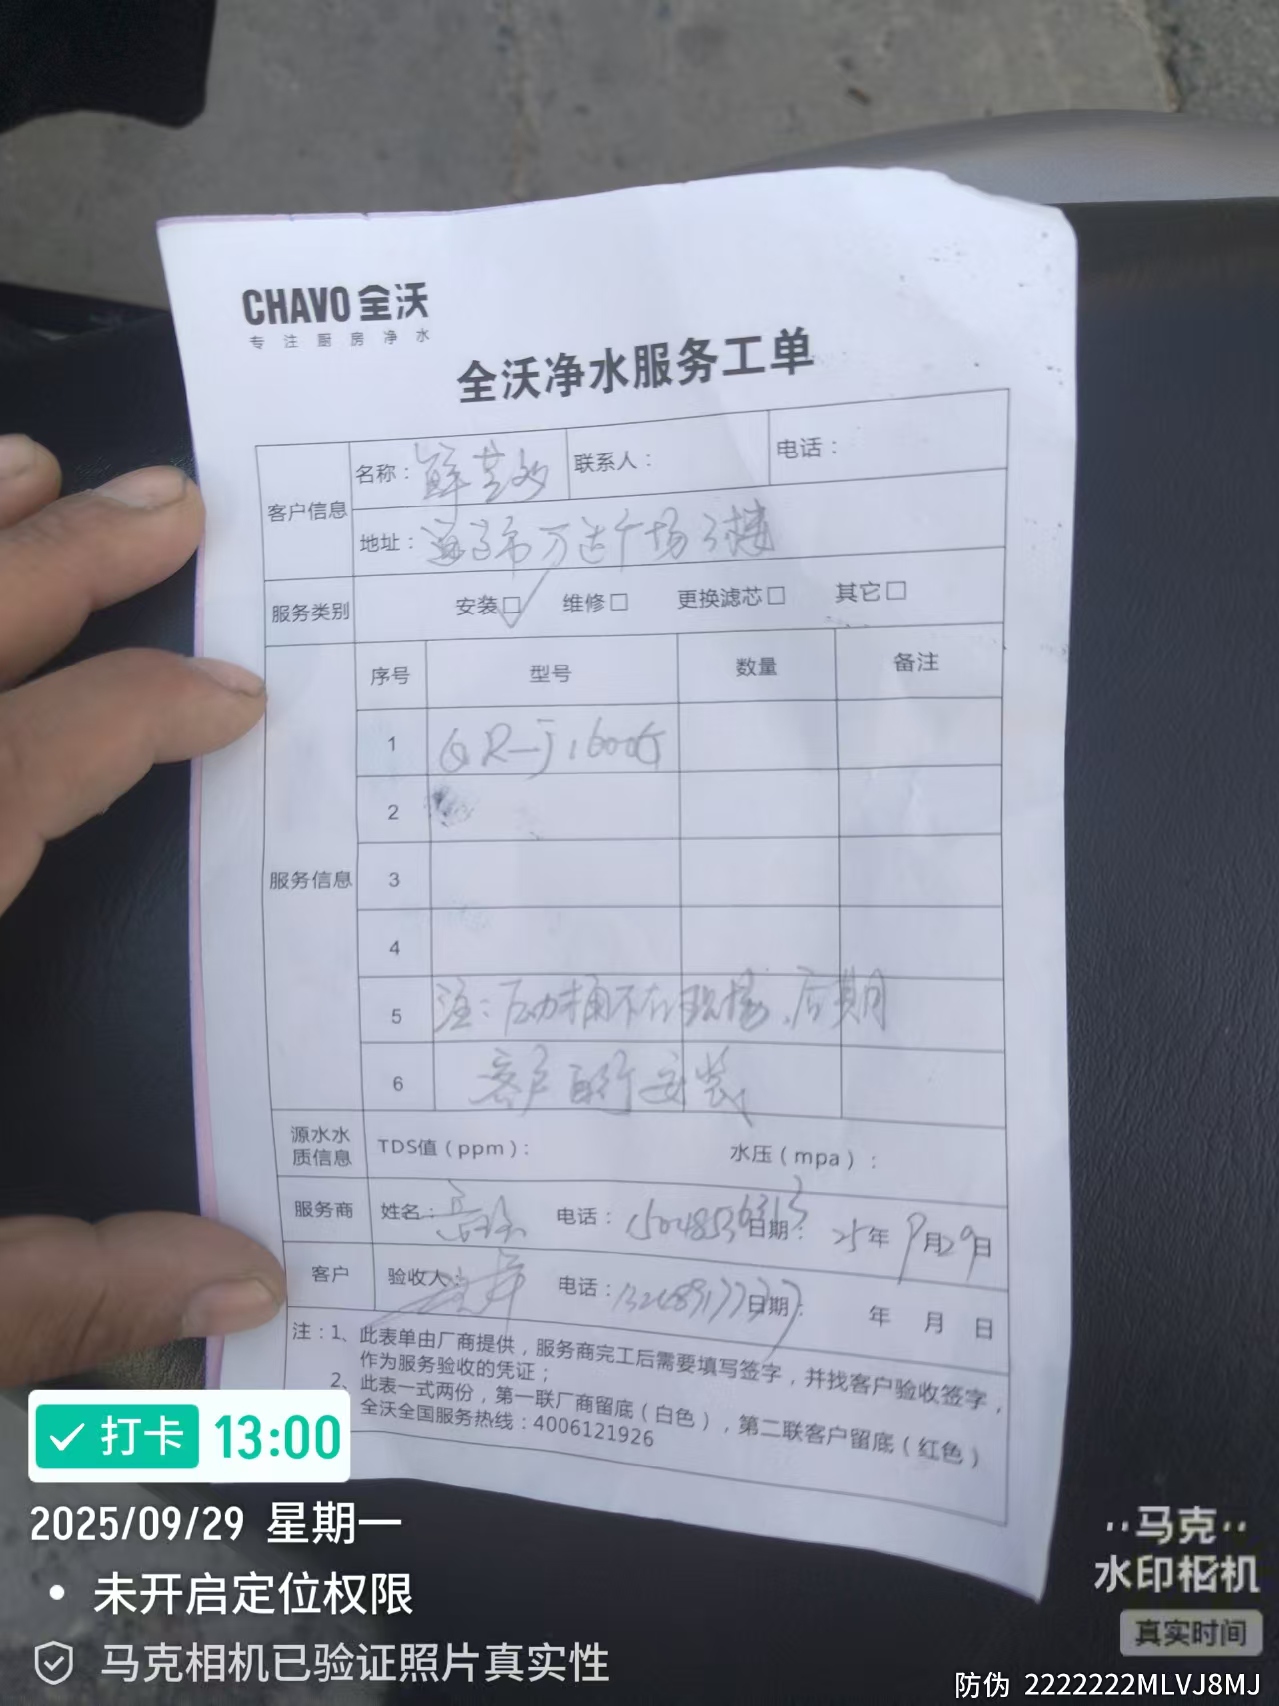 CHAVO 全沃
专注厨房净水
全沃净水服务工单
客户信息
名称： 联系人： 电话：
地址： 万达广场3楼
服务类别 安装□ ✓ 维修□ 更换滤芯□ 其它□
服务信息
序号 型号 数量 备注
1 QR-J1600G
2
3
4
5 注：压力桶不在现场，后期
6 客户自行安装
源水水质信息 TDS值（ppm）： 水压（mpa）：
服务商 姓名： 电话： 日期： 25年9月29日
客户 验收人： 电话： 日期： 年 月 日
注：1、此表单由厂商提供，服务商完工后需要填写签字，并找客户验收签字，
作为服务验收的凭证；
2、此表一式两份，第一联厂商留底（白色），第二联客户留底（红色）
全沃全国服务热线：4006121926
打卡 13:00
2025/09/29 星期一
未开启定位权限
马克相机已验证照片真实性
马克
水印相机
真实时间
防伪 2222222MLVJ8MJ